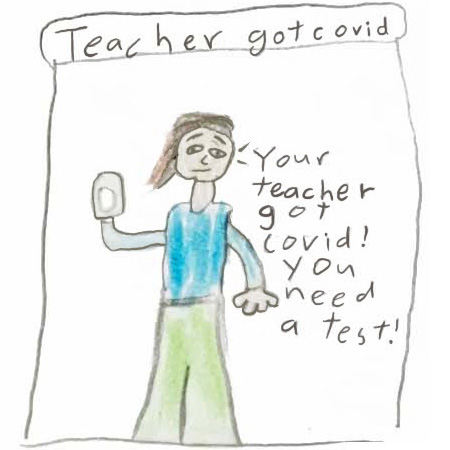 Teacher got covid
Your
teacher
got
covid!
you
need
a test!